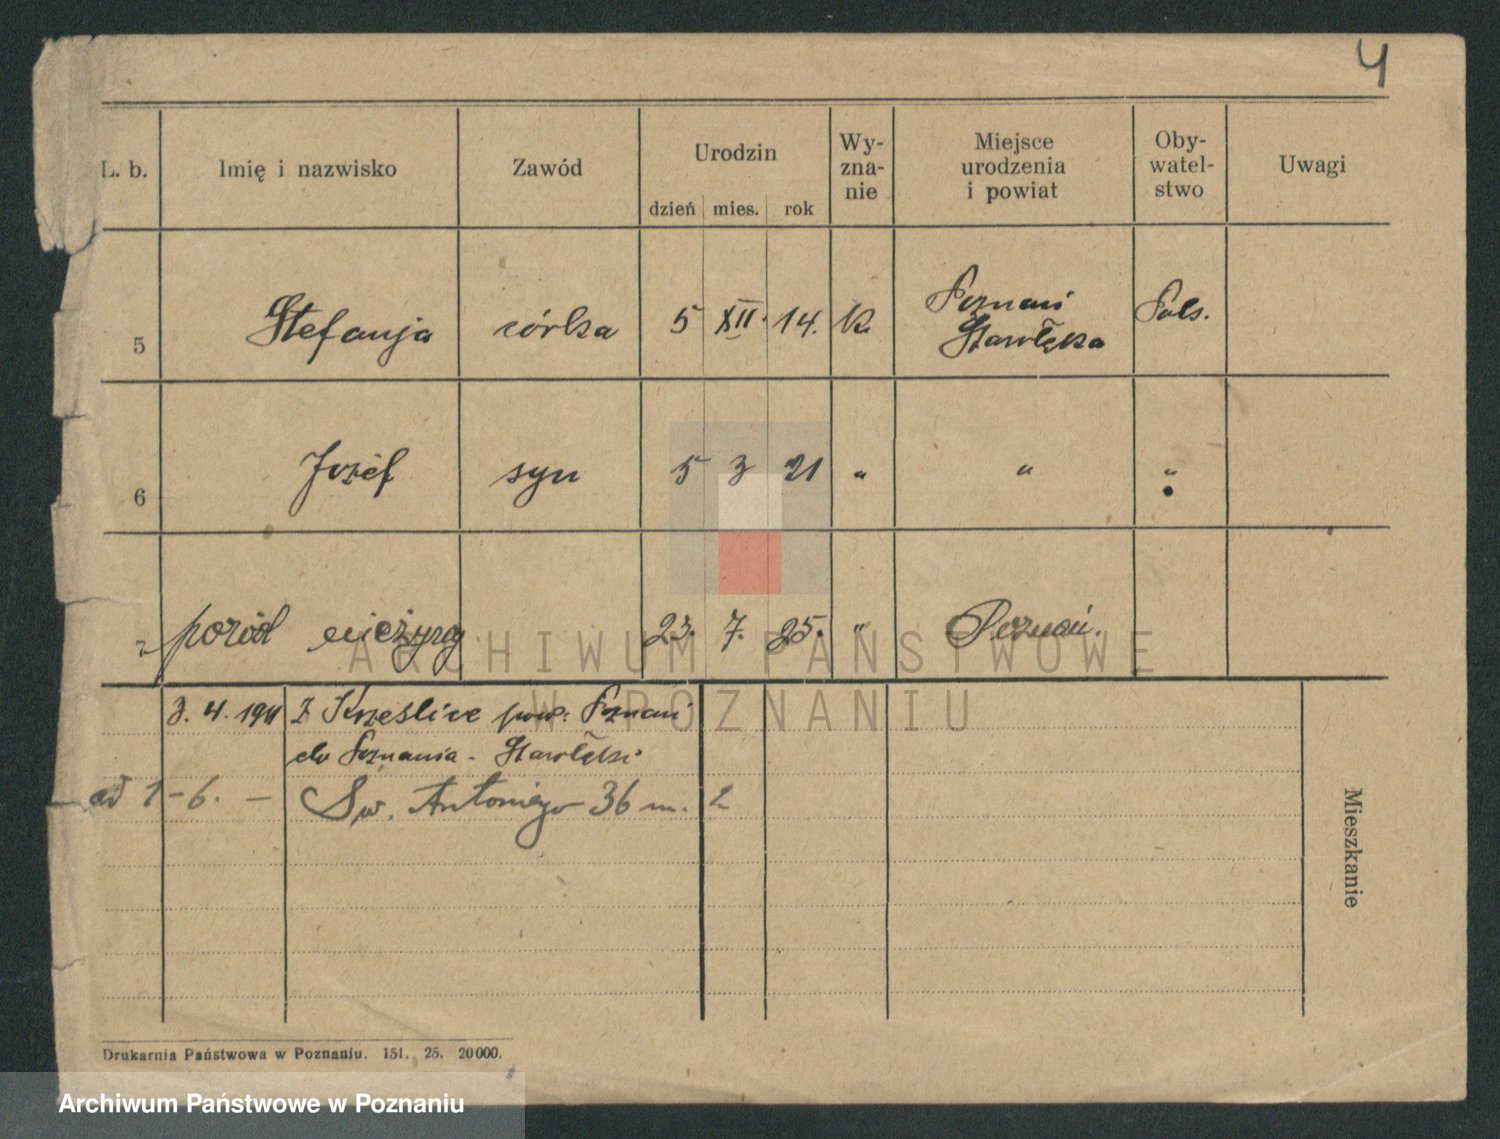 4
L. b. Imię i nazwisko Zawód Urodzin dzień mies. rok Wy-zna-nie Miejsce urodzenia i powiat Oby-watel-stwo Uwagi
5 Stefanja córka 5 XII. 14. K. Poznań Starołęka Pols.
6 Józef syn 5 3 21 " " "
7 poród nieżywy 23. 7. 25. " Poznań.
ARCHIWUM PAŃSTWOWE
W POZNANIU
3. 4. 1911 Z Krześlice pow: Poznań
do Poznania - Starołęki
od 1-6. — Św. Antoniego 36 m. 2
Mieszkanie
Drukarnia Państwowa w Poznaniu. 151. 25. 20000.
Archiwum Państwowe w Poznaniu